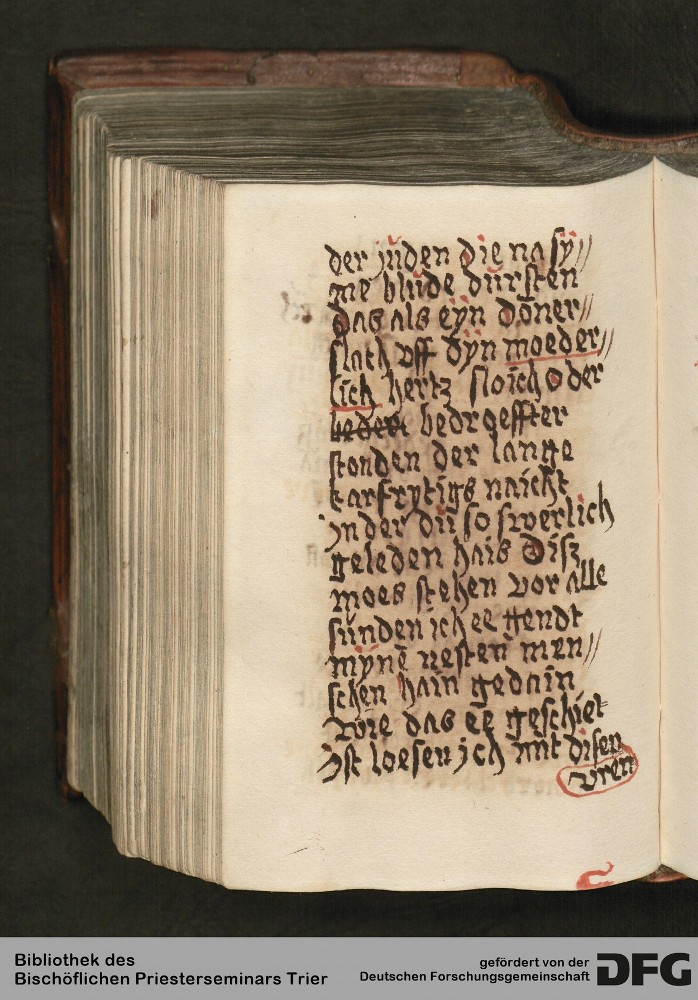 der jüden die na sÿ//
me blüde dürsten
das als eÿn döner//
slach vff dÿn moeder//
lich hertz sloich oder
bedroeffter
stonden der lange
karfrÿtigs naicht
jn der dü so swerlich
geleden hais Disz
moes stehen vor alle
sünden ich ee gendt
mÿnē nesten men//
schen hain gedain
wie das ee geschiet
jst loesen ich mit disen
vren
Bibliothek des
Bischöflichen Priesterseminars Trier
gefördert von der
Deutschen Forschungsgemeinschaft
DFG